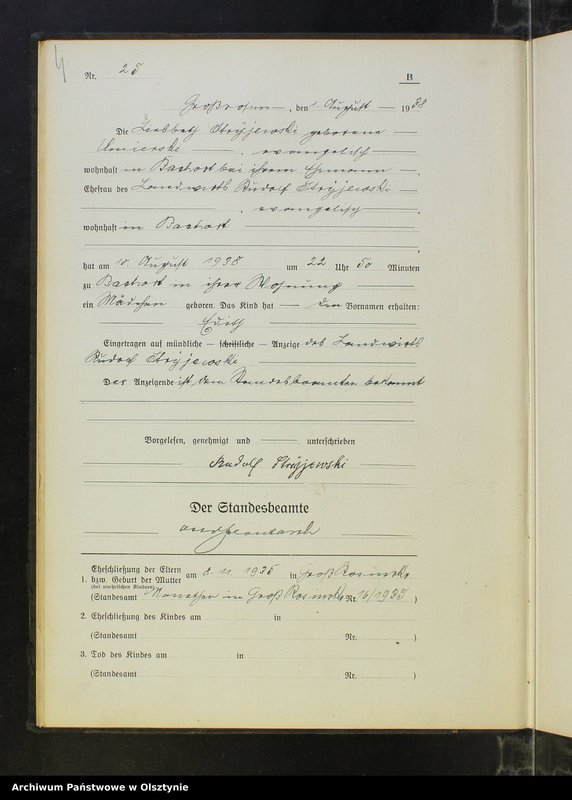 Nr. 25
B
Großrosen, den 1. August 1938
Die Liesbeth Stryjewski geborene
Umierski, evangelisch
wohnhaft in Bachort bei ihrem Ehemann,
Ehefrau des Landwirts Rudolf Stryjewski
, evangelisch,
wohnhaft in Bachort
hat am 10. August 1938 um 22 Uhr 50 Minuten
zu Bachort in ihrer Wohnung
ein Mädchen geboren. Das Kind hat den Vornamen erhalten:
Edith
Eingetragen auf mündliche – schriftliche – Anzeige des Landwirts
Rudolf Stryjewski
Der Anzeigende ist dem Standesbeamten bekannt
Vorgelesen, genehmigt und unterschrieben
Rudolf Stryjewski
Der Standesbeamte
Eheschließung der Eltern
1. bzw. Geburt der Mutter am 8. 11. 1935 in Groß Rosinsko
(bei unehelichen Kindern)
(Standesamt in Groß Rosinsko Nr. 16/1935)
2. Eheschließung des Kindes am in
(Standesamt Nr. )
3. Tod des Kindes am in
(Standesamt Nr. )
Archiwum Państwowe w Olsztynie